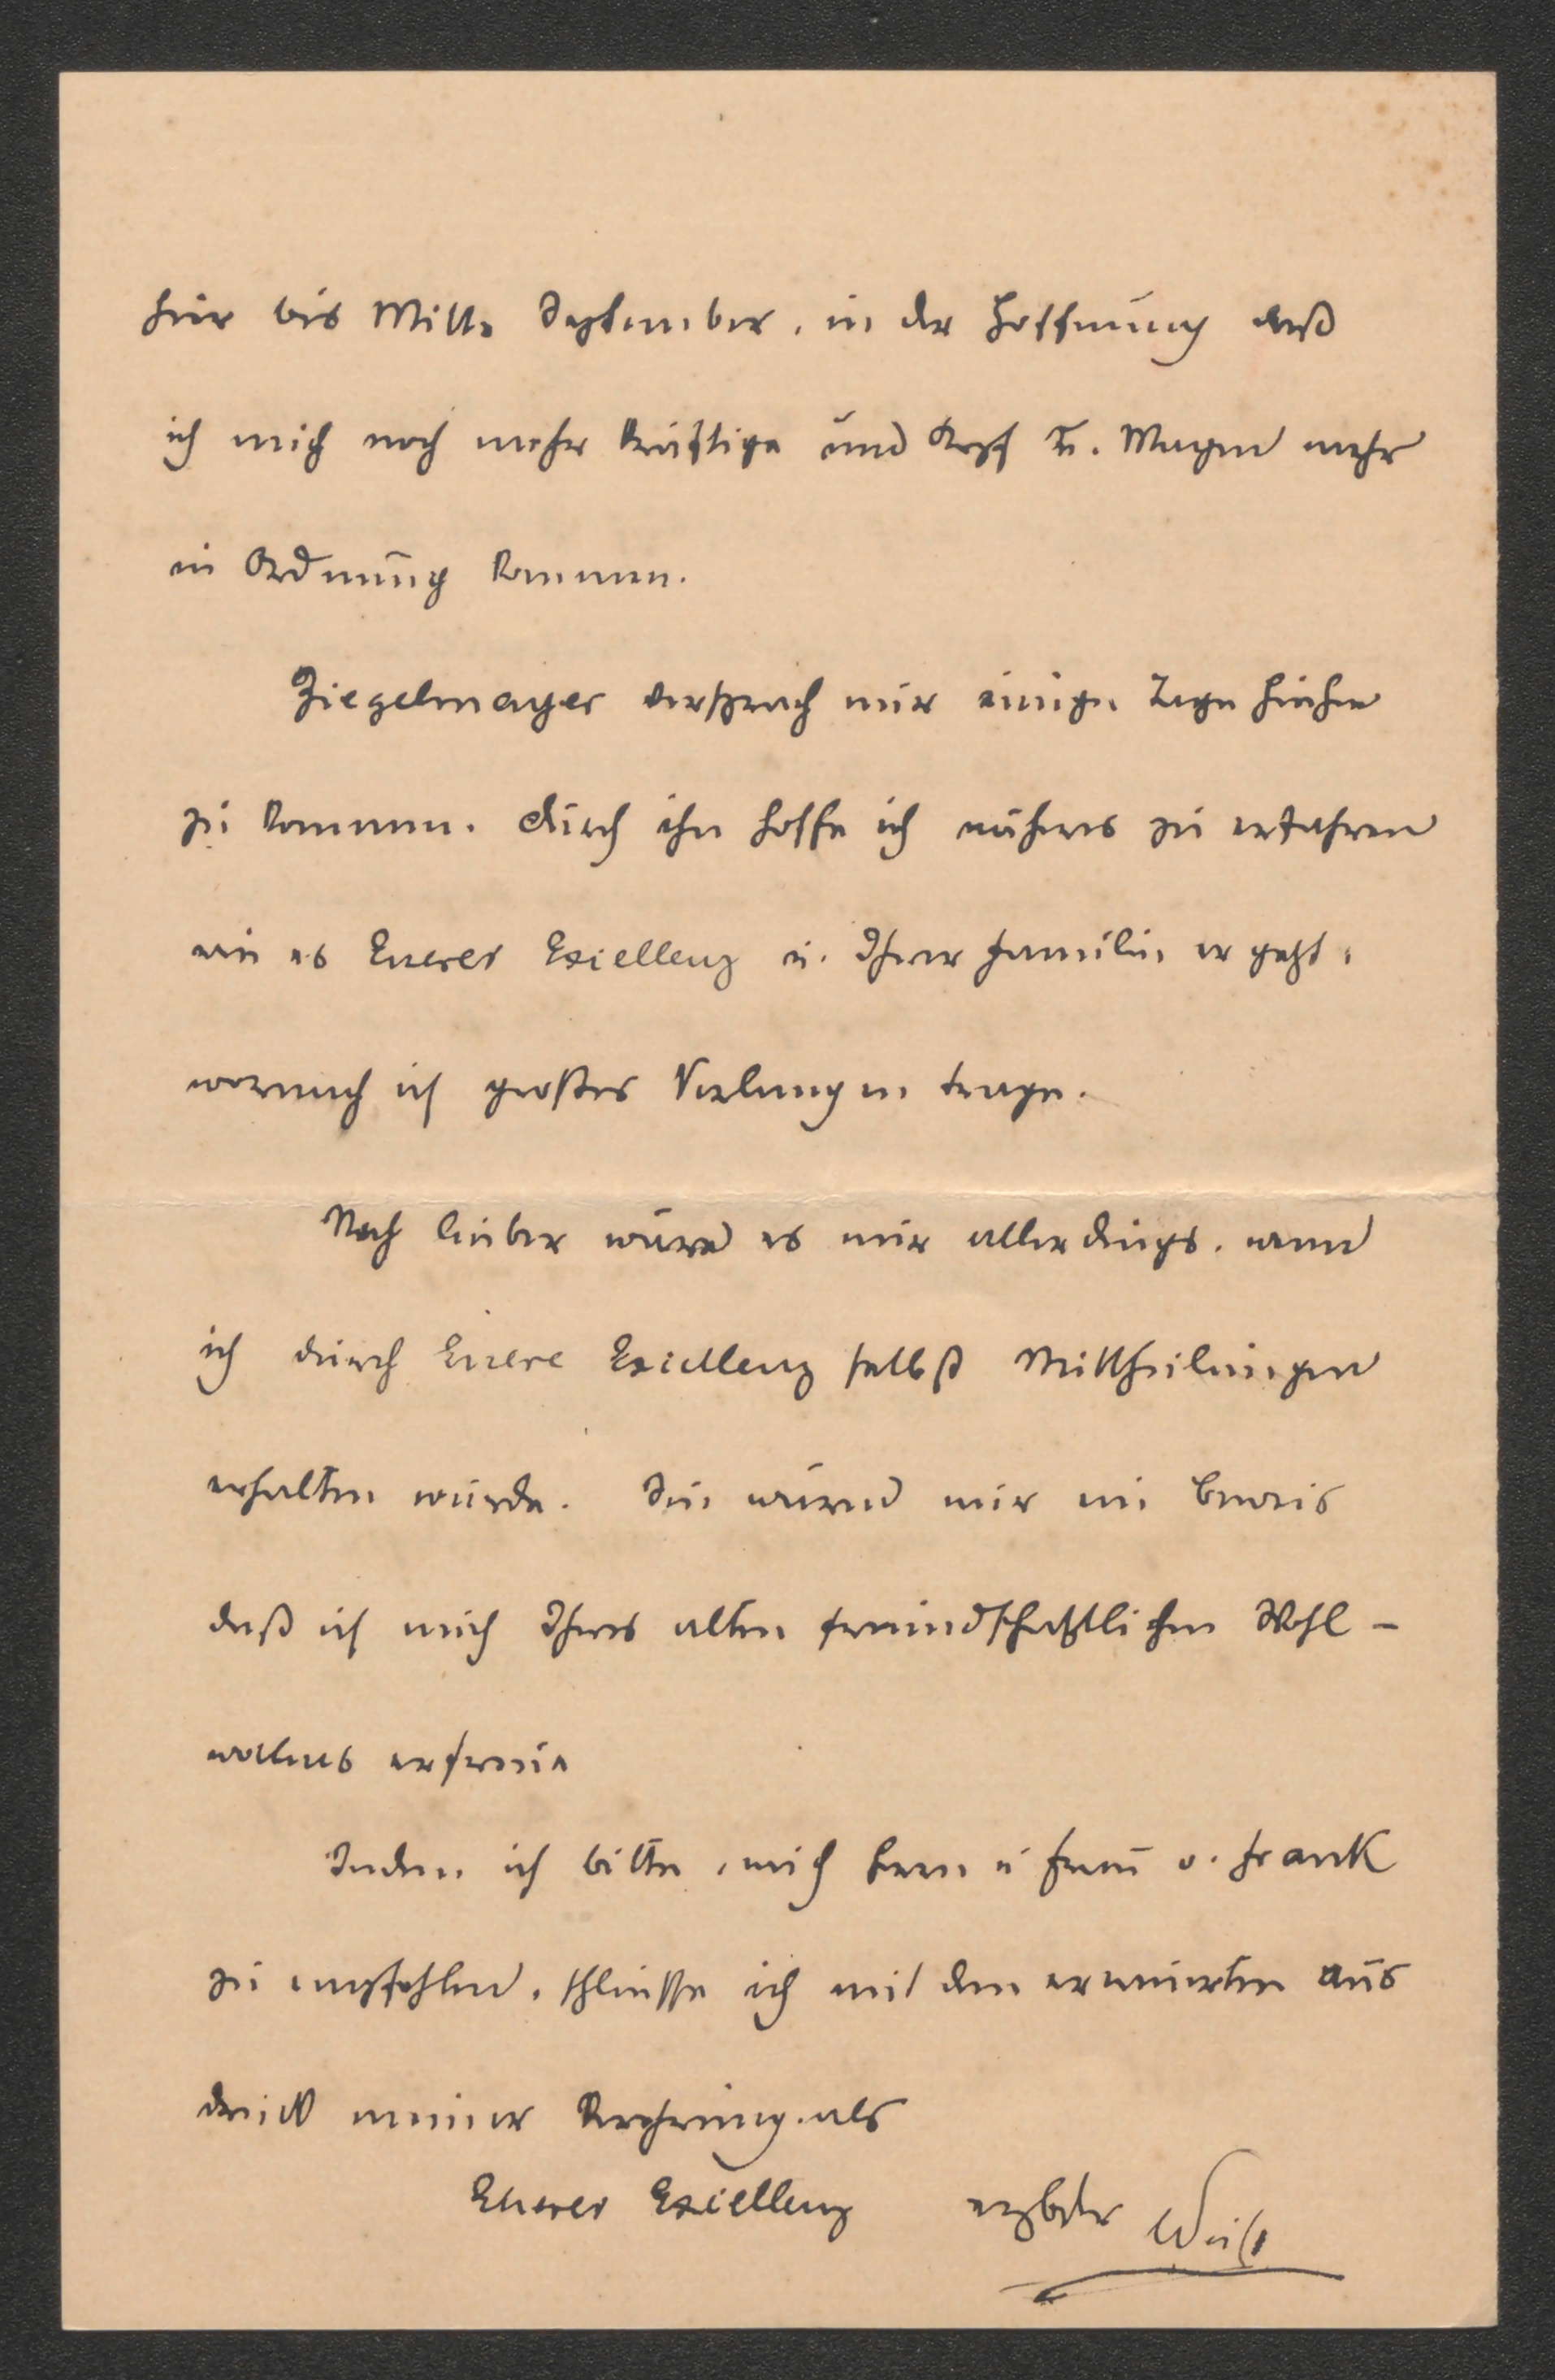 hier bis Mitte September, in der Hoffnung daß
ich mich noch mehr kräftige und Kopf u. Magen mehr
in Ordnung kommen.
Ziegelmayer versprach mir einige Tage hieher
zu kommen. Durch ihn hoffe ich näheres zu erfahren
wie es Euerer Exzellenz u. Ihrer Familie ergeht,
wornach ich großes Verlangen trage.
Noch lieber wäre es mir allerdings, wenn
ich durch Euere Exzellenz selbst Mittheilungen
erhalten würde. Sie wären mir ein Beweis
daß ich mich Ihres alten freundschaftlichen Wohl-
wollens erfreue
Indem ich bitte, mich Herrn u Frau v. Frank
zu empfehlen, schliesse ich mit dem erneuerten Aus
druck meiner Verehrung als
Euerer Exzellenz